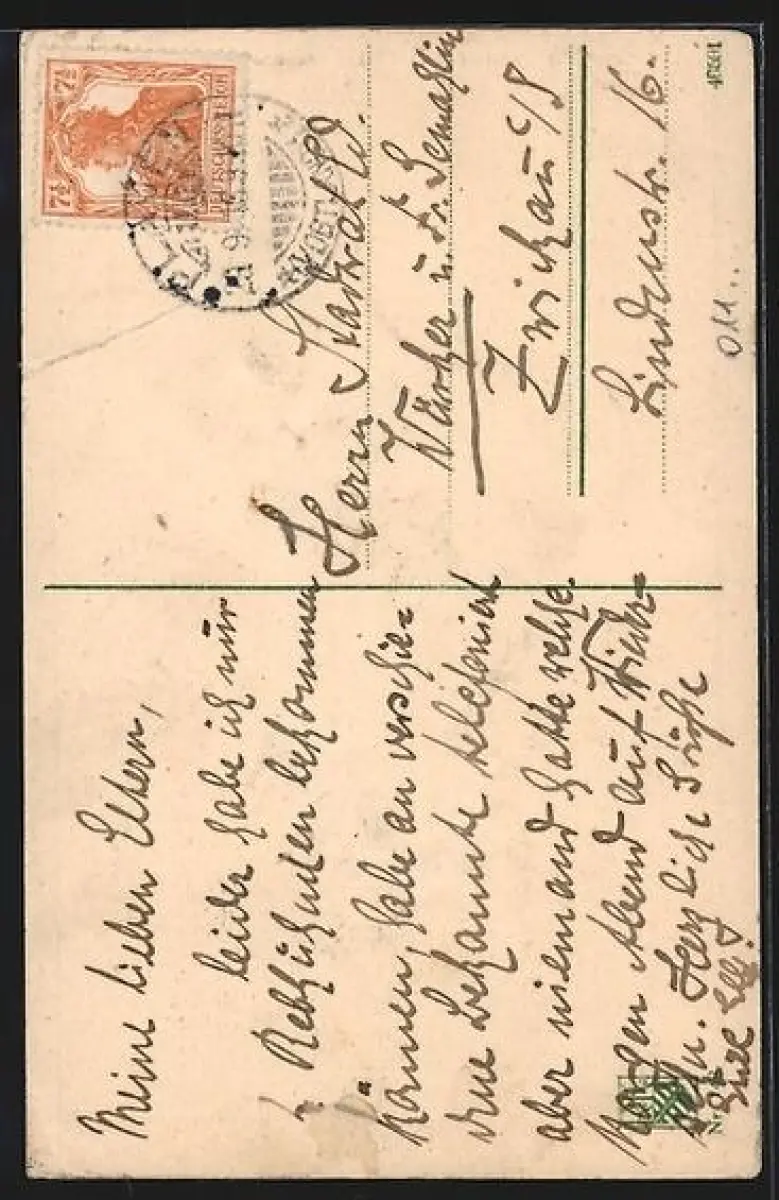 Meine lieben Eltern,
leider habe ich nur
2 Rebhühner bekommen
können, habe an verschie=
dene Bekannte telefoniert
aber niemand hatte welche.
Morgen Abend auf Wieder=
sehn. Herzliche Grüße
Eure Elly.
Herrn Stadtrat E.
u. Fr. Gemahlin
Zwickau i/S
Lindenstr. 16.
7½ 7½
DEUTSCHES REICH
(VOGTL.)
011..